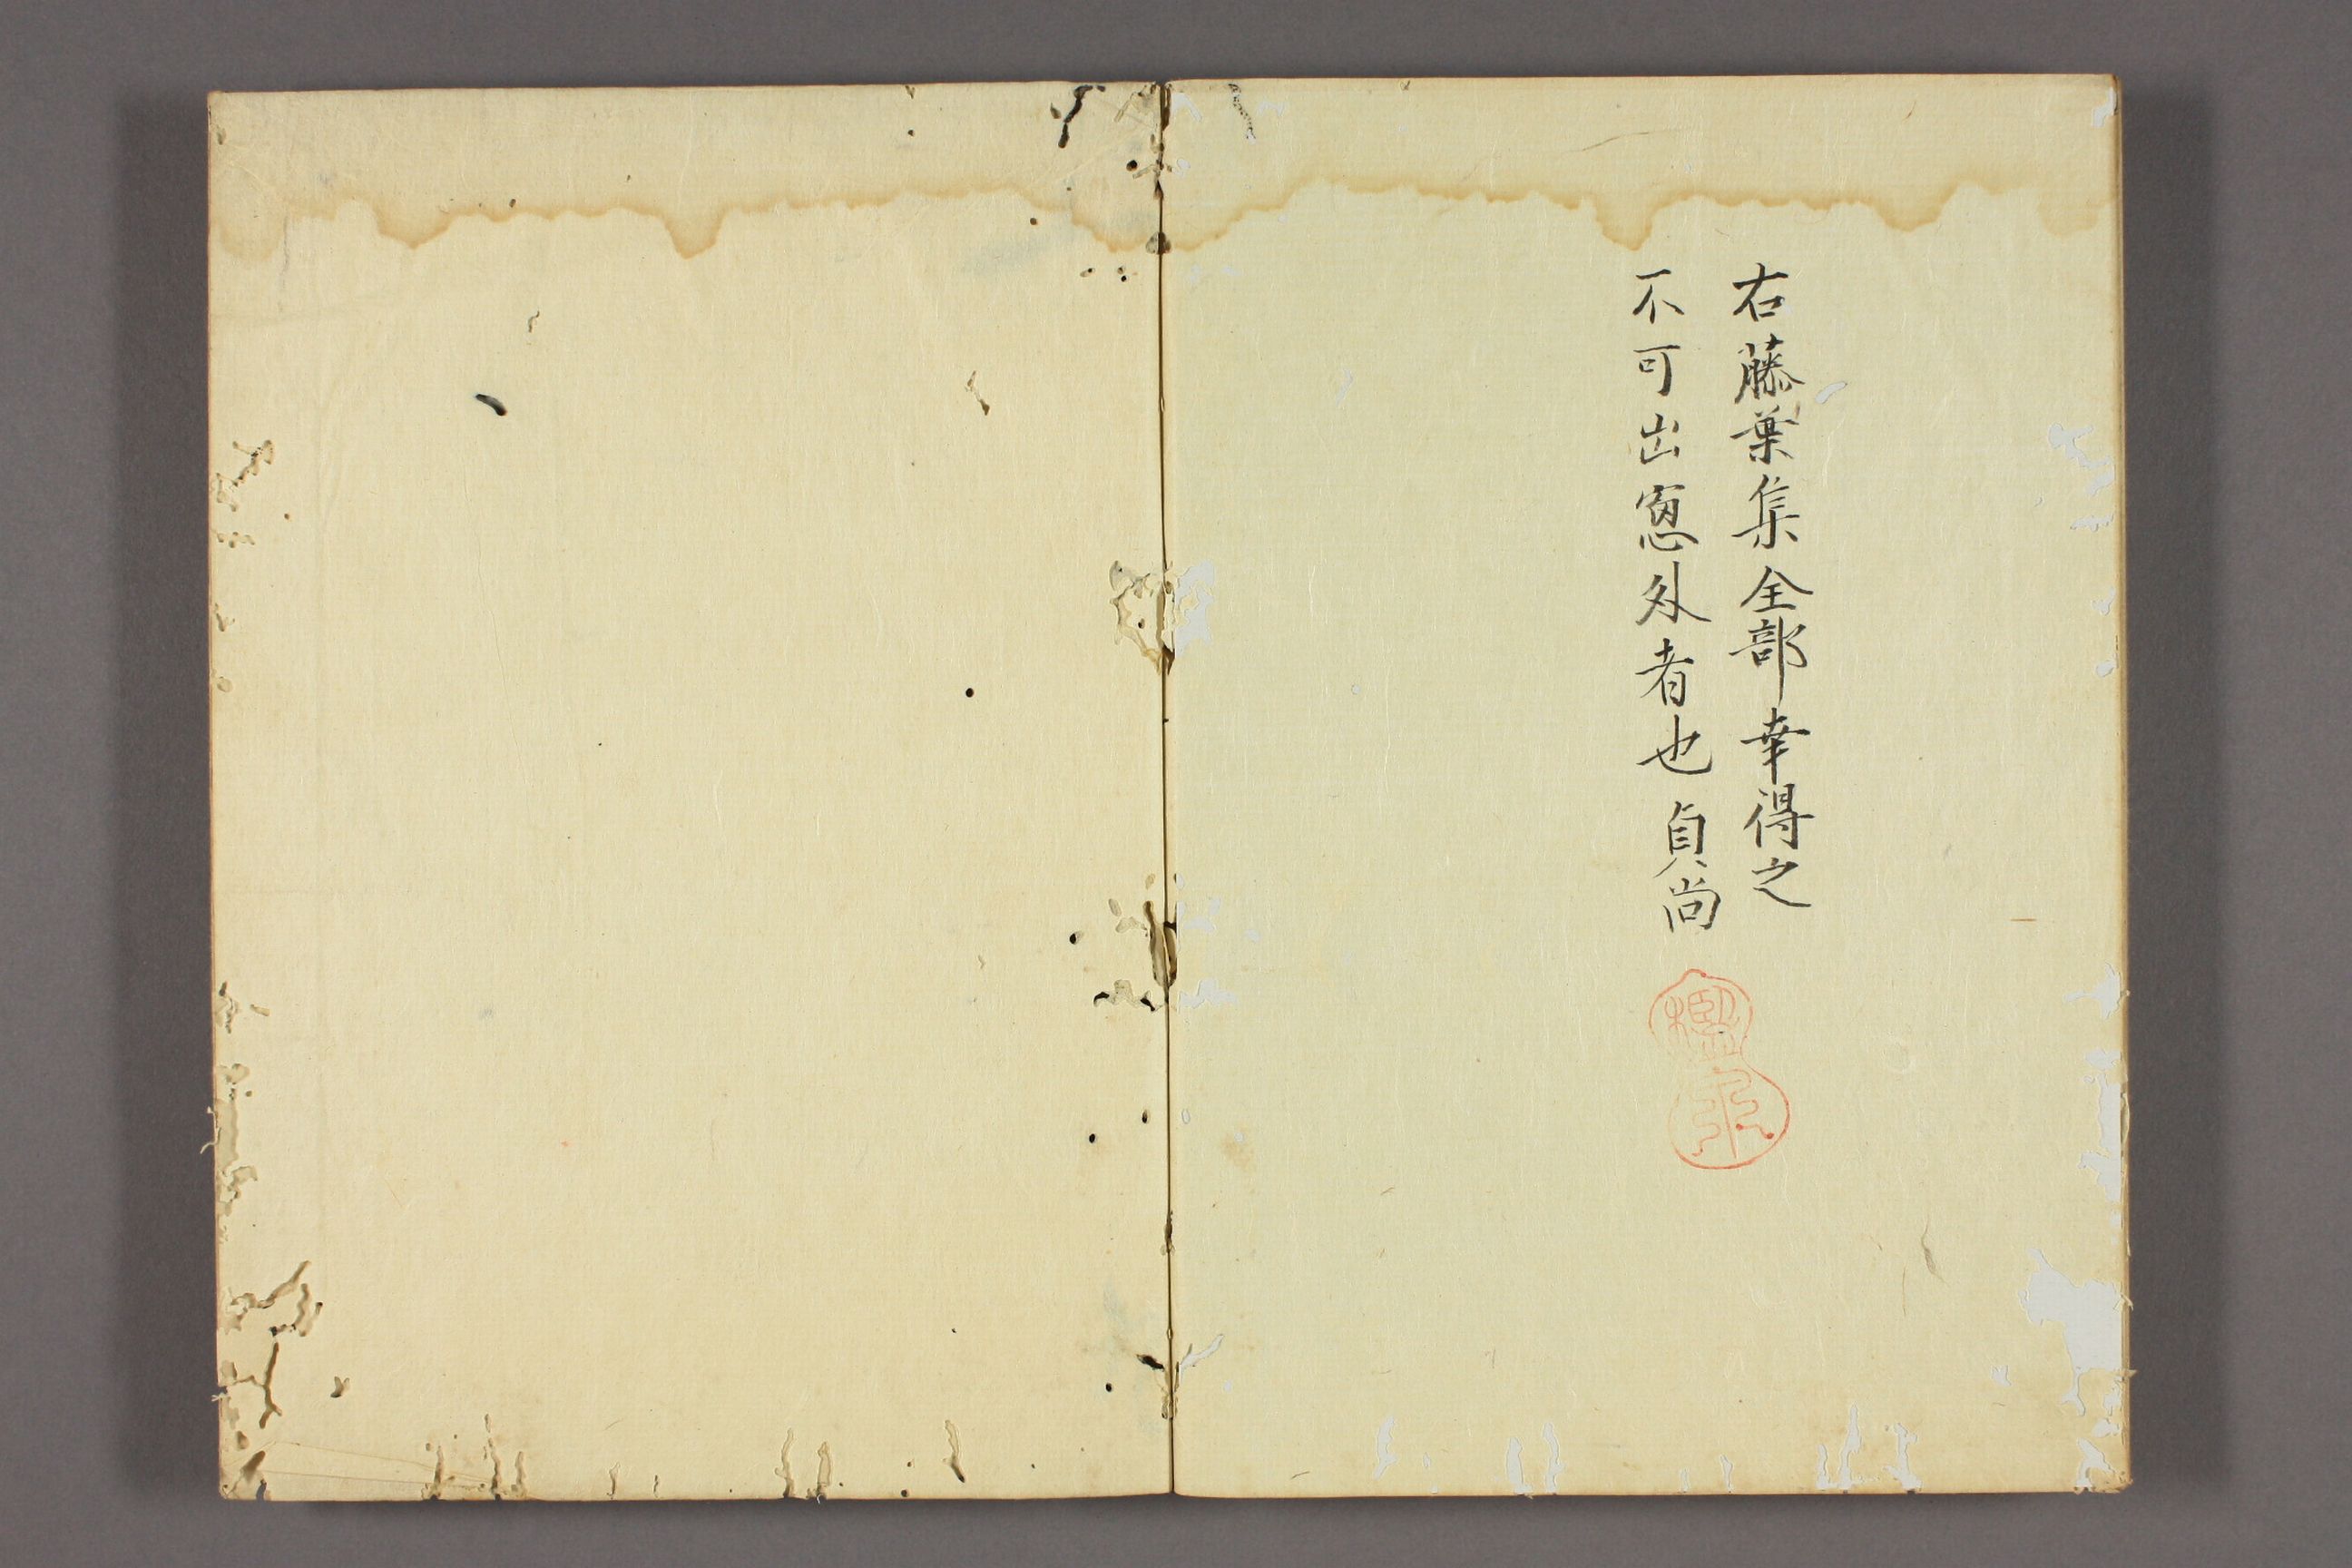 右藤葉集全部幸得之
不可出窓外者也 貞尚